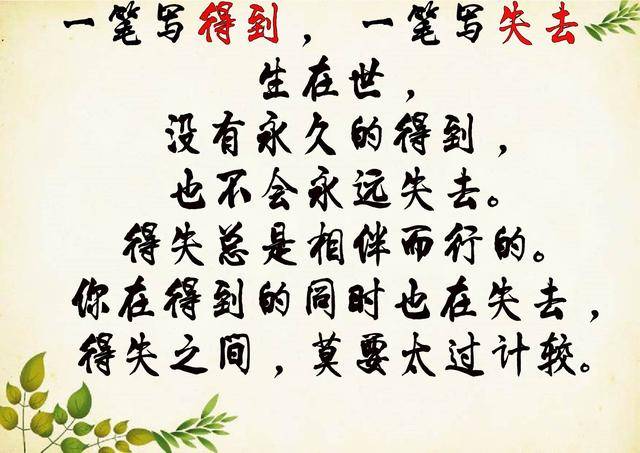 一笔写得到，一笔写失去
生在世，
没有永久的得到，
也不会永远失去。
得失总是相伴而行的。
你在得到的同时也在失去，
得失之间，莫要太过计较。